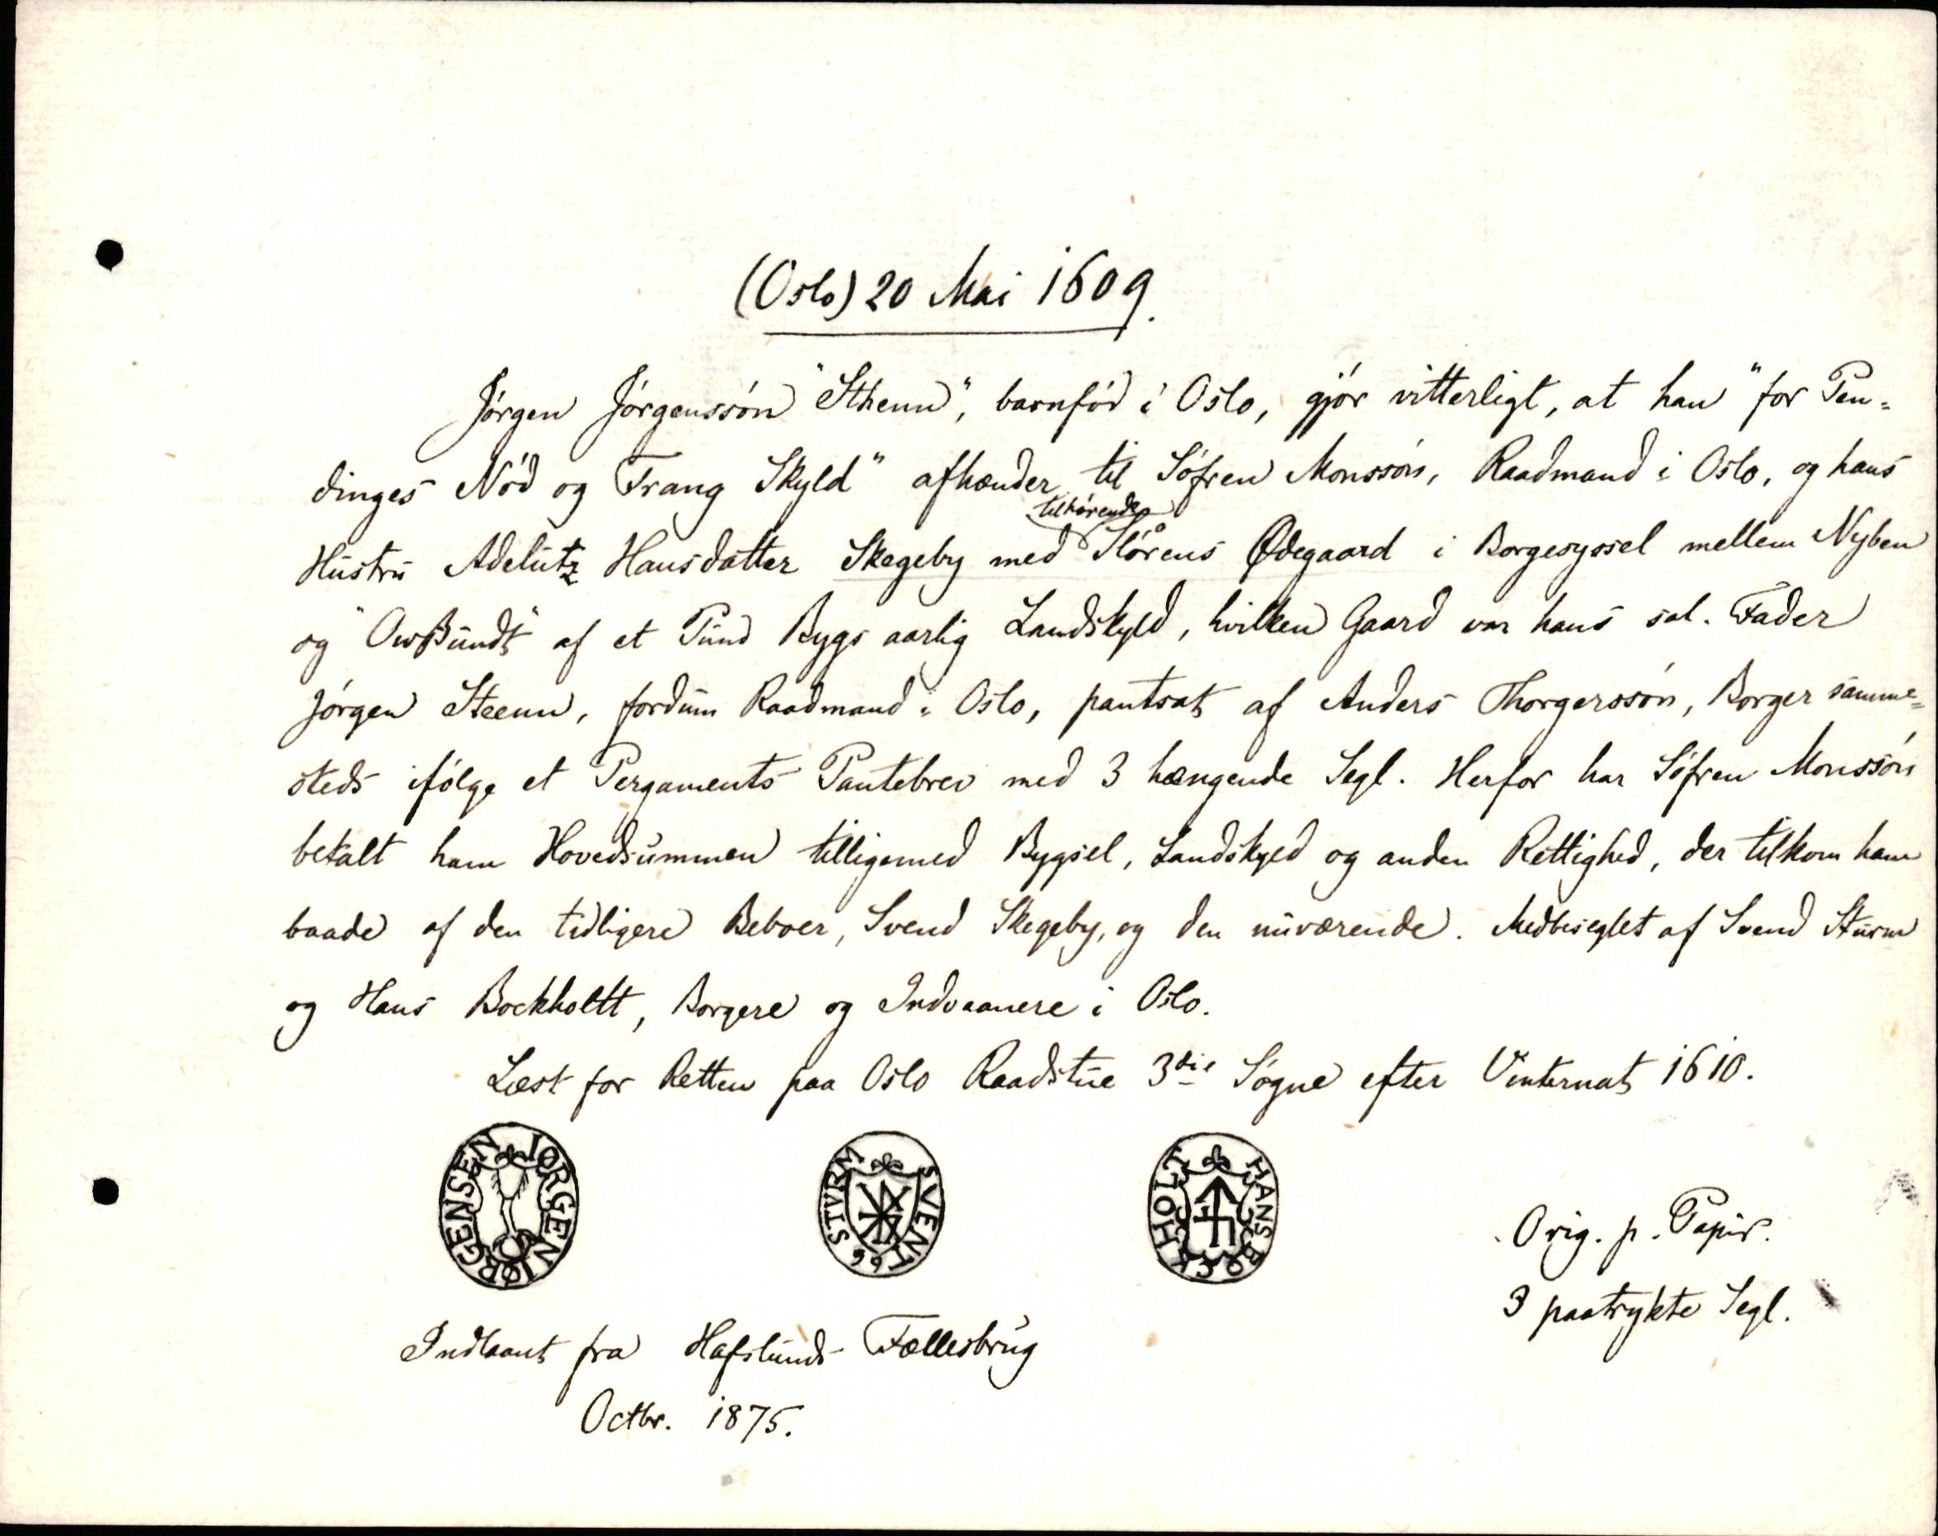 (Oslo) 20 Mai 1609.
Jørgen Jørgenssøn "Sthenn", barnfød i Oslo, gjør vitterligt, at han "for Pen=
dinges Nød og Trang Skyld" afhænder til Søfren Monssøn, Raadmand i Oslo, og hans
Hustru Adelutz Hansdatter Skegeby med tilhørende Slørens Ødegaard i Borgesyssel mellem Nyben
og "Owßundt" af et Pund Bygs aarlig Landskyld, hvilken Gaard var hans sal. Fader
Jørgen Steenn, fordum Raadmand i Oslo, pantsat af Anders Thorgerssøn, Borger samme=
steds ifølge et Pergaments Pantebrev med 3 hængende Segl. Herfor har Søfren Monssøn
betalt ham Hovedsummen tilligemed Bygsel, Landskyld og anden Rettighed, der tilkom ham
baade af den tidligere Beboer, Svend Skegeby, og den nuværende. Medbeseglet af Svend Sturm
og Hans Bockholtt, Borgere og Indvaanere i Oslo.
Læst for Retten paa Oslo Raadstue 3die Søgne efter Vinternat 1610.
IØRGEN IØRGENSEN
SVENT STVRM 66
HANS BOCKHOLT
Orig. p. Papir.
3 paatrykte Segl.
Indlaant fra Hafslunds Fællesbrug
Octbr. 1875.